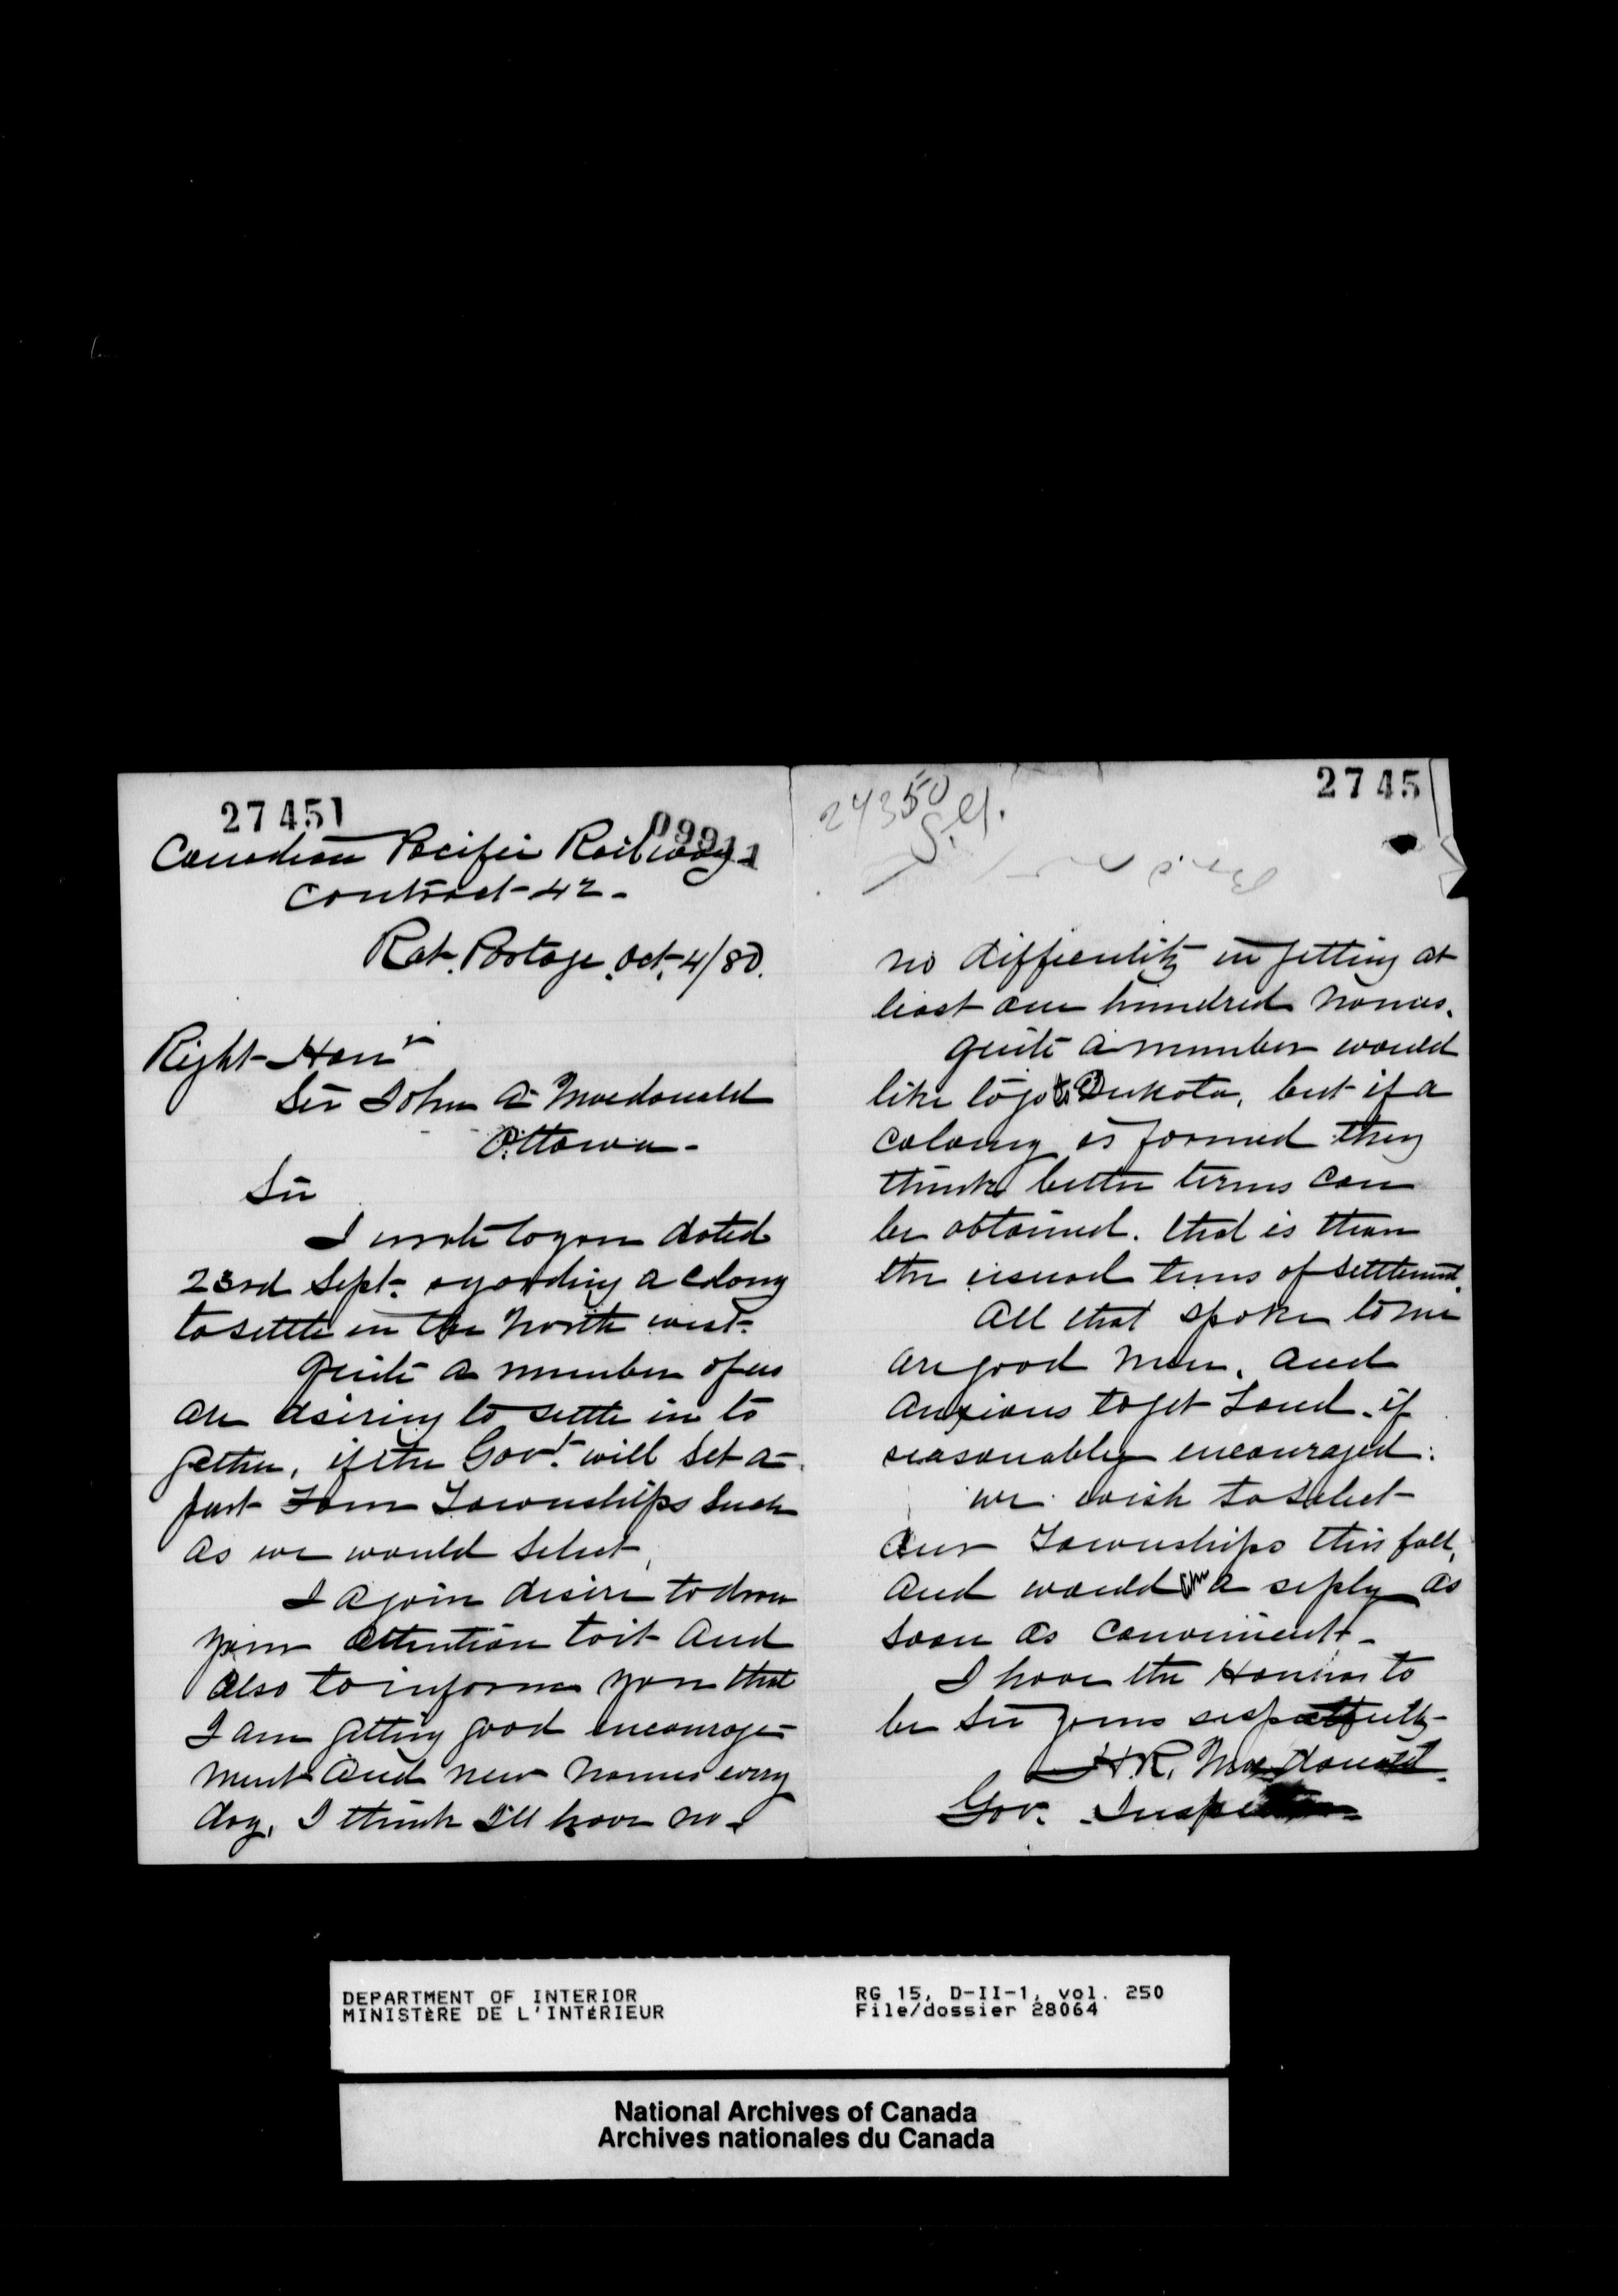 27451
09911
Canadian Pacific Railway
Contract 42 -
Rat. Portage Oct. 4/80.
Right Hon
Sir John A Macdonald
Ottawa -
Sir
I wrote to you dated
23rd Sept. regarding a Colony
to settle in the North west.
Quite a number of us
are desiring to settle in to
gether, if the Govt. will set a-
part Four Townships Such
as we would select,
I again desire to draw
your attention to it and
also to inform you that
I am getting good encourage-
ment and new names every
day, I think I'll have no -
24350
S.G.
2745
no difficulity in getting at
least one hundred names.
quite a number would
like to go to Dukota, but if a
colony is formed they
think better terms can
be obtained. that is than
the usual terms of settlement.
All that spoke to me
are good men, and
anxious to get Land. if
reasonably encouraged.
we wish to select
our Townships this fall,
and would a reply as
soon as convenient -
I have the Honour to
be Sir yours respectfully -
H.R. Macdonald
Gov. Inspector
DEPARTMENT OF INTERIOR
MINISTÈRE DE L'INTÉRIEUR
RG 15, D-II-1, vol. 250
File/dossier 28064
National Archives of Canada
Archives nationales du Canada